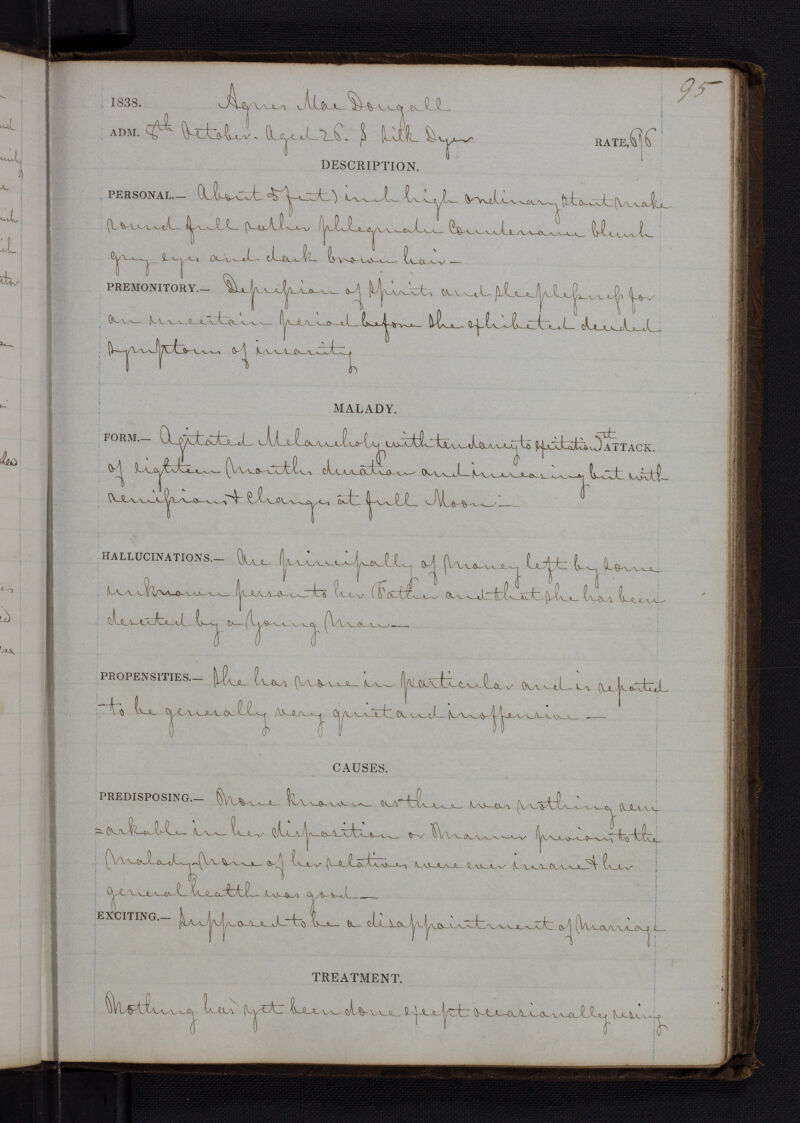 95
1838. Agnes MacDougall
ADM. 8th October. Aged 26. S Silk Dyer RATE,
DESCRIPTION.
PERSONAL.— About 5 feet 1 inch high ordinary stout make
round full rather phlegmatic Countenance bluish
grey eyes and dark brown hair —
PREMONITORY.— Depression of Spirits and sleeplessness for
an uncertain period before she exhibited decided
symptoms of insanity
MALADY.
FORM.— Agitated Melancholy with tendency to 1st ATTACK.
of eighteen Months duration and increasing but with
remissions & Changes at full Moon —
HALLUCINATIONS.— Are principally of Money left by some
unknown person to her Father and that she has been
deserted by a Young Man —
PROPENSITIES.— She has none in particular and is reported
to be generally very quiet and inoffensive —
CAUSES.
PREDISPOSING.— None known as there was nothing rem
=arkable in her disposition or Manner previous to the
Malady, None of her relatives were ever insane & her
general health was good —
EXCITING.— Supposed to be a disappointment of Marriage
TREATMENT.
Nothing has yet been done except occasionally using